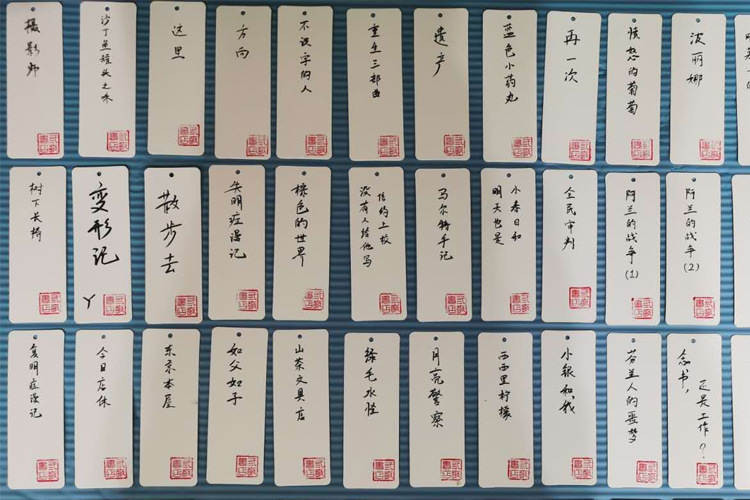 摄影师
沙丁鱼罐头之味
这里
方向
不识字的人
重生三部曲
遗产
蓝色小药丸
再一次
愤怒的葡萄
波丽娜
树下长椅
变形记
Y
散步去
失明症漫记
棕色的世界
没有人给他写
信的上校
马尔特手记
明天也是
小春日和
全民审判
阿兰的战争(1)
阿兰的战争(2)
复明症漫记
今日店休
东京本屋
如父如子
山茶文具店
绿毛水怪
月亮警察
西西里柠檬
小银和我
芬兰人的噩梦
念书,
还是工作?